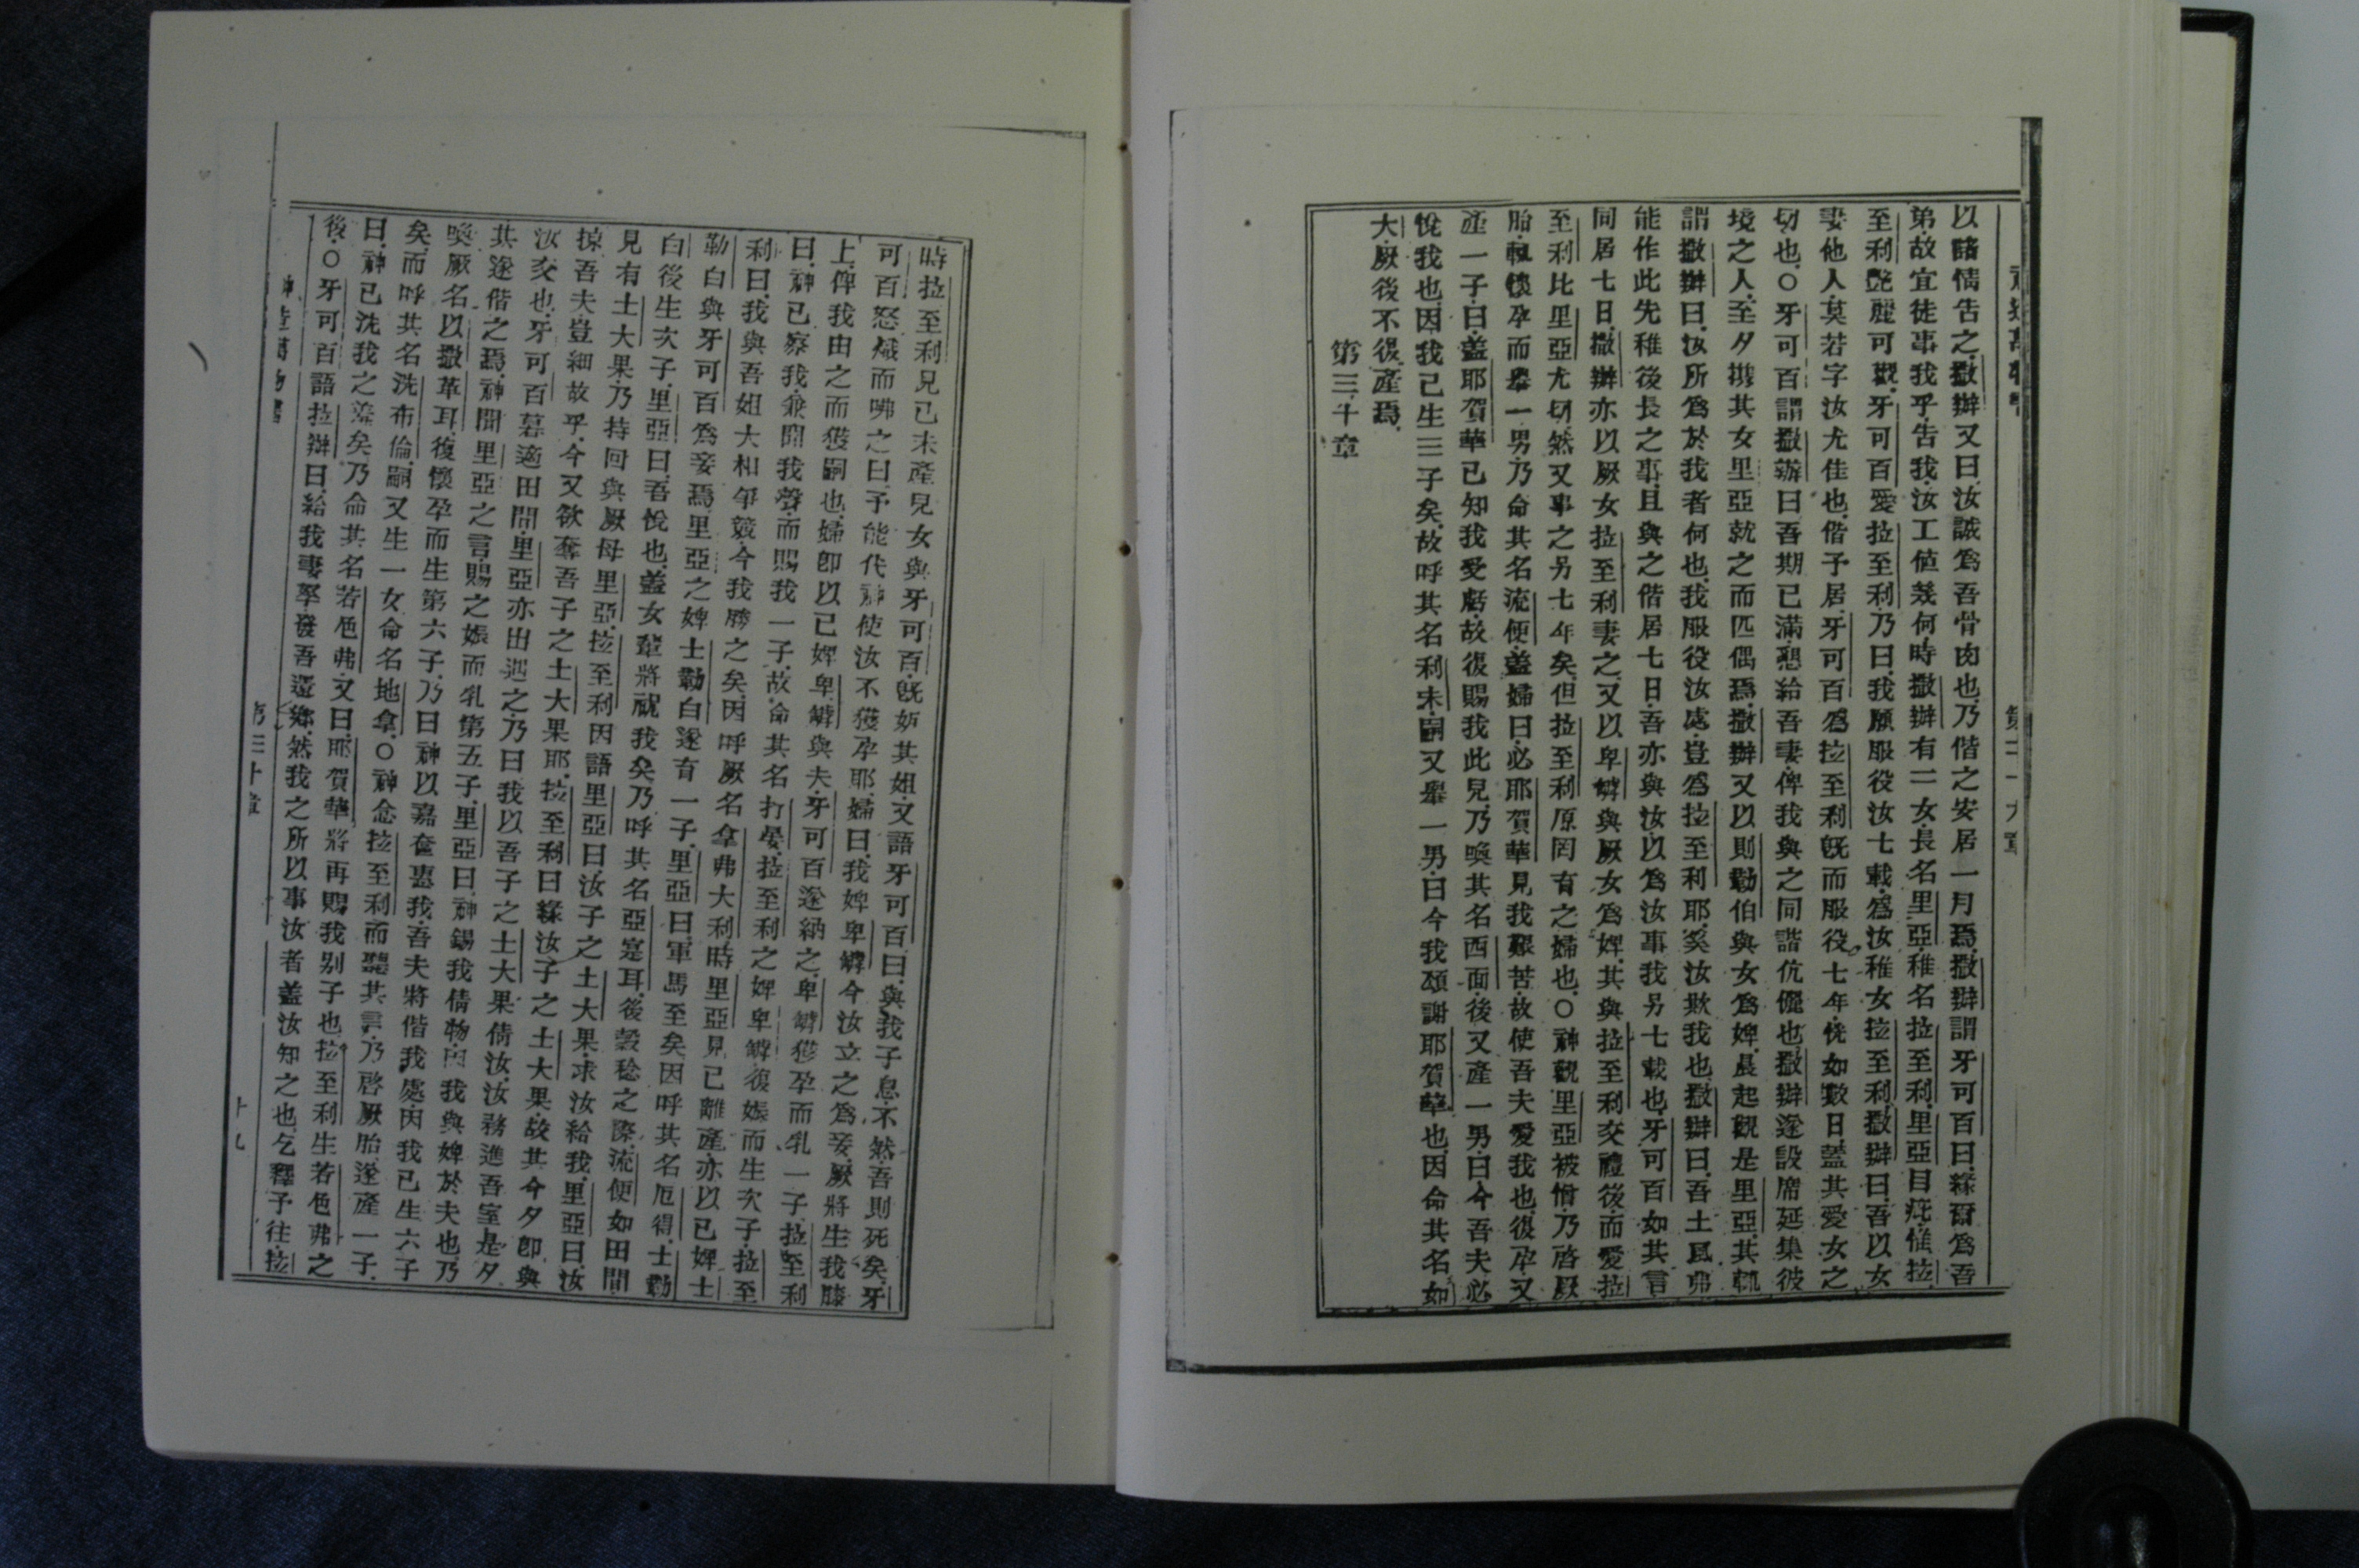 以諸情告之撒辦又曰汝誠爲吾骨肉也乃偕之安居一月焉撒辦謂牙可百曰緣爾爲吾
弟故宜徒事我乎告我汝工値幾何時撒辦有二女長名里亞稚名拉至利里亞目疵惟拉
至利艶麗可觀牙可百愛拉至利乃曰我願服役汝七載爲汝稚女拉至利撒辦曰吾以女
妻他人莫若字汝尤佳也偕予居牙可百爲拉至利旣而服役七年恍如數日蓋其愛女之
切也○牙可百謂撒辦曰吾期已滿懇給吾妻俾我與之同諧伉儷也撒辦遂設席延集彼
境之人至夕携其女里亞就之而匹偶焉撒辦又以則勤伯與女爲婢晨起觀是里亞其
謂撒辦曰汝所爲於我者何也我服役汝處豈爲拉至利耶奚汝欺我也撒辦曰吾土風弗
能作此先稚後長之事且與之偕居七日吾亦與汝以爲汝事我另七載也牙可百如其言
同居七日撒辦亦以厥女拉至利妻之又以卑罅與厥女爲婢其與拉至利交禮後而愛拉
至利比里亞尤切然又事之另七年矣但拉至利原罔有之婦也○神觀里亞被憎乃啓厥
胎輒懷孕而舉一男乃命其名流便蓋婦曰必耶賀華見我艱苦故使吾夫愛我也復孕又
產一子曰蓋耶賀華已知我受惡故復賜我此兒乃喚其名西面後又產一男曰今吾夫必
悅我也因我已生三子矣故呼其名利未嗣又舉一男曰今我頌謝耶賀華也因命其名如
大厥後不復產焉
第三十章
時拉至利見已未產兒女與牙可百旣妬其姐又語牙可百曰與我子息不然吾則死矣牙
可百怒熾而咈之曰予能代神使汝不獲孕耶婦曰我婢卑罅今汝立之爲妾厥將生我膝
上俾我由之而獲嗣也婦卽以已婢卑罅與夫牙可百遂納之卑罅獲孕而乳一子拉至利
曰神已察我兼聞我聲而賜我一子故命其名打晏拉至利之婢卑罅復娠而生次子拉至
利曰我與吾姐大相爭競今我勝之矣因呼厥名拿弗大利時里亞見已離產亦以已婢士
勒白與牙可百爲妾焉里亞之婢士勒白遂育一子里亞曰軍馬至矣因呼其名厄得士勒
白後生次子里亞曰吾悅也蓋女輩將祝我矣乃呼其名亞寔耳後穀稔之際流便如田間
見有土大果乃持回與厥母里亞拉至利因語里亞曰汝子之土大果求汝給我里亞曰汝
掠吾夫豈細故乎今又欲奪吾子之土大果耶拉至利曰緣汝子之土大果故其今夕卽與
汝交也牙可百暮適田間里亞亦出遇之乃曰我以吾子之土大果倩汝汝務進吾室是夕
其遂偕之焉神聞里亞之言賜之娠而乳第五子里亞曰神錫我倩物因我與婢於夫也乃
喚厥名以撒革耳復懷孕而生第六子乃曰神以嘉奩惠我吾夫將偕我處因我已生六子
矣而呼其名洗布倫嗣又生一女命名地拿○神念拉至利而聽其言乃啓厥胎遂產一子
曰神已洗我之羞矣乃命其名若色弗又曰耶賀華將再賜我别子也拉至利生若色弗之
後○牙可百語拉辦曰給我妻孥發吾還鄉然我之所以事汝者蓋汝知之也乞釋予往拉
神造萬物書
第三十章
十九